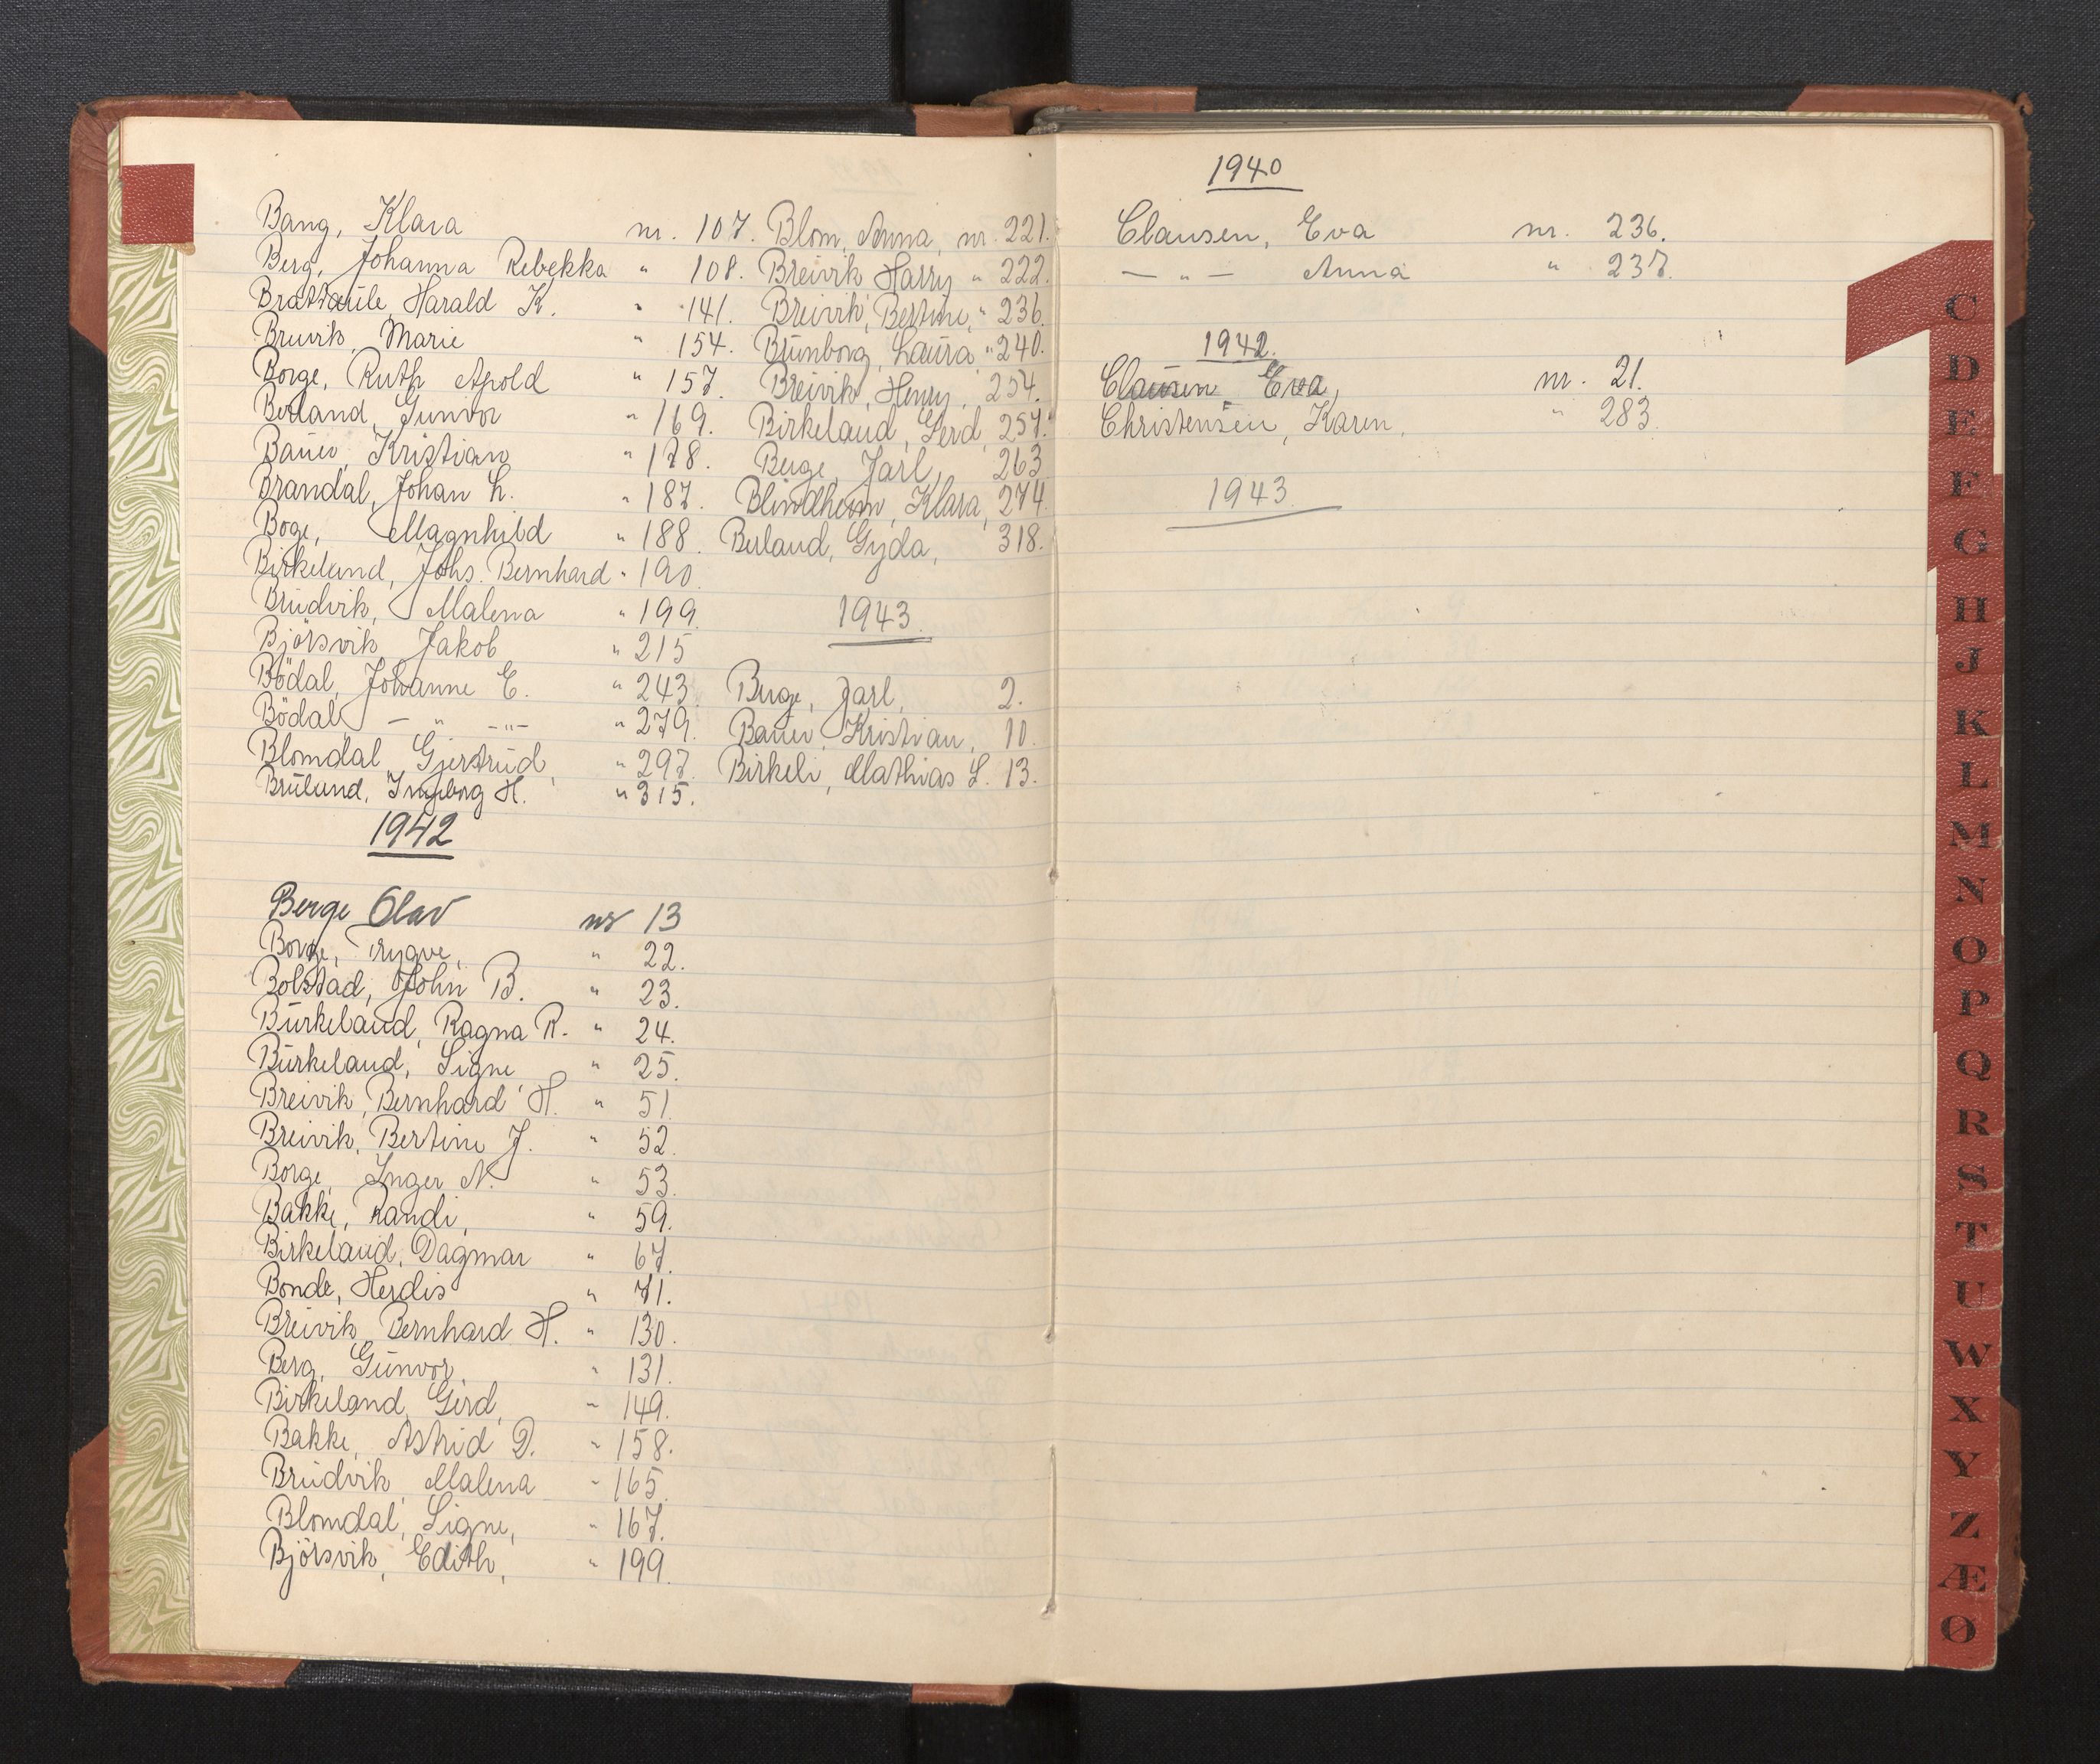 Bang, Klara nr. 107.
Berg, Johanna Rebekka " 108.
Brattaule, Harald K. " 141.
Bruvik, Marie " 154.
Borge, Ruth Apold " 157.
Berland, Gunvor " 169.
Bauer, Kristian " 178.
Brandal, Johan L. " 187.
Boge, Magnhild " 188.
Birkeland, Johs. Bernhard " 190.
Brudvik, Malena " 199.
Björsvik, Jakob " 215
Bödal, Johanne E. " 243.
Bödal, — " — -"- " 279.
Blomdal Gjertrud, " 297.
Bruland, Ingeborg H. " 315.
1942
Berge Olav nr 13
Borge, Trygve, " 22.
Bolstad, John B. " 23.
Burkeland, Ragna R. " 24.
Burkeland, Signe " 25.
Breivik, Bernhard H. " 51.
Breivik, Bertine J. " 52.
Borge, Inger N. " 53.
Bakke, Randi, " 59.
Birkeland, Dagmar " 67.
Bonde, Herdis " 71.
Breivik, Bernhard H. " 130.
Berg, Gunvor, " 131.
Birkeland, Gerd, " 149.
Bakke, Astrid D. " 158.
Brudvik, Malena " 165.
Blomdal, Signe, " 167.
Björsvik, Edith, " 199.
Blom, Anna, nr. 221.
Breivik Harry " 222.
Breivik, Bertine, " 236.
Brunborg, Laura " 240.
Breivik, Henry, 254.
Birkeland, Gerd, 257.
Berge, Jarl, 263
Blindheim, Klara, 274.
Berland, Gyda, 318.
1943.
Berge, Jarl, 2.
Bauer, Kristian, 10.
Birkeli, Mathias L. 13.
1940
Clausen, Eva nr. 236.
— " — Anna " 237.
1942.
Clausen, Eva, nr. 21.
Christensen, Karen, " 283.
1943.
C
D
E
F
G
H
J
K
L
M
N
O
P
Q
R
S
T
U
W
X
Y
Z
Æ
Ø